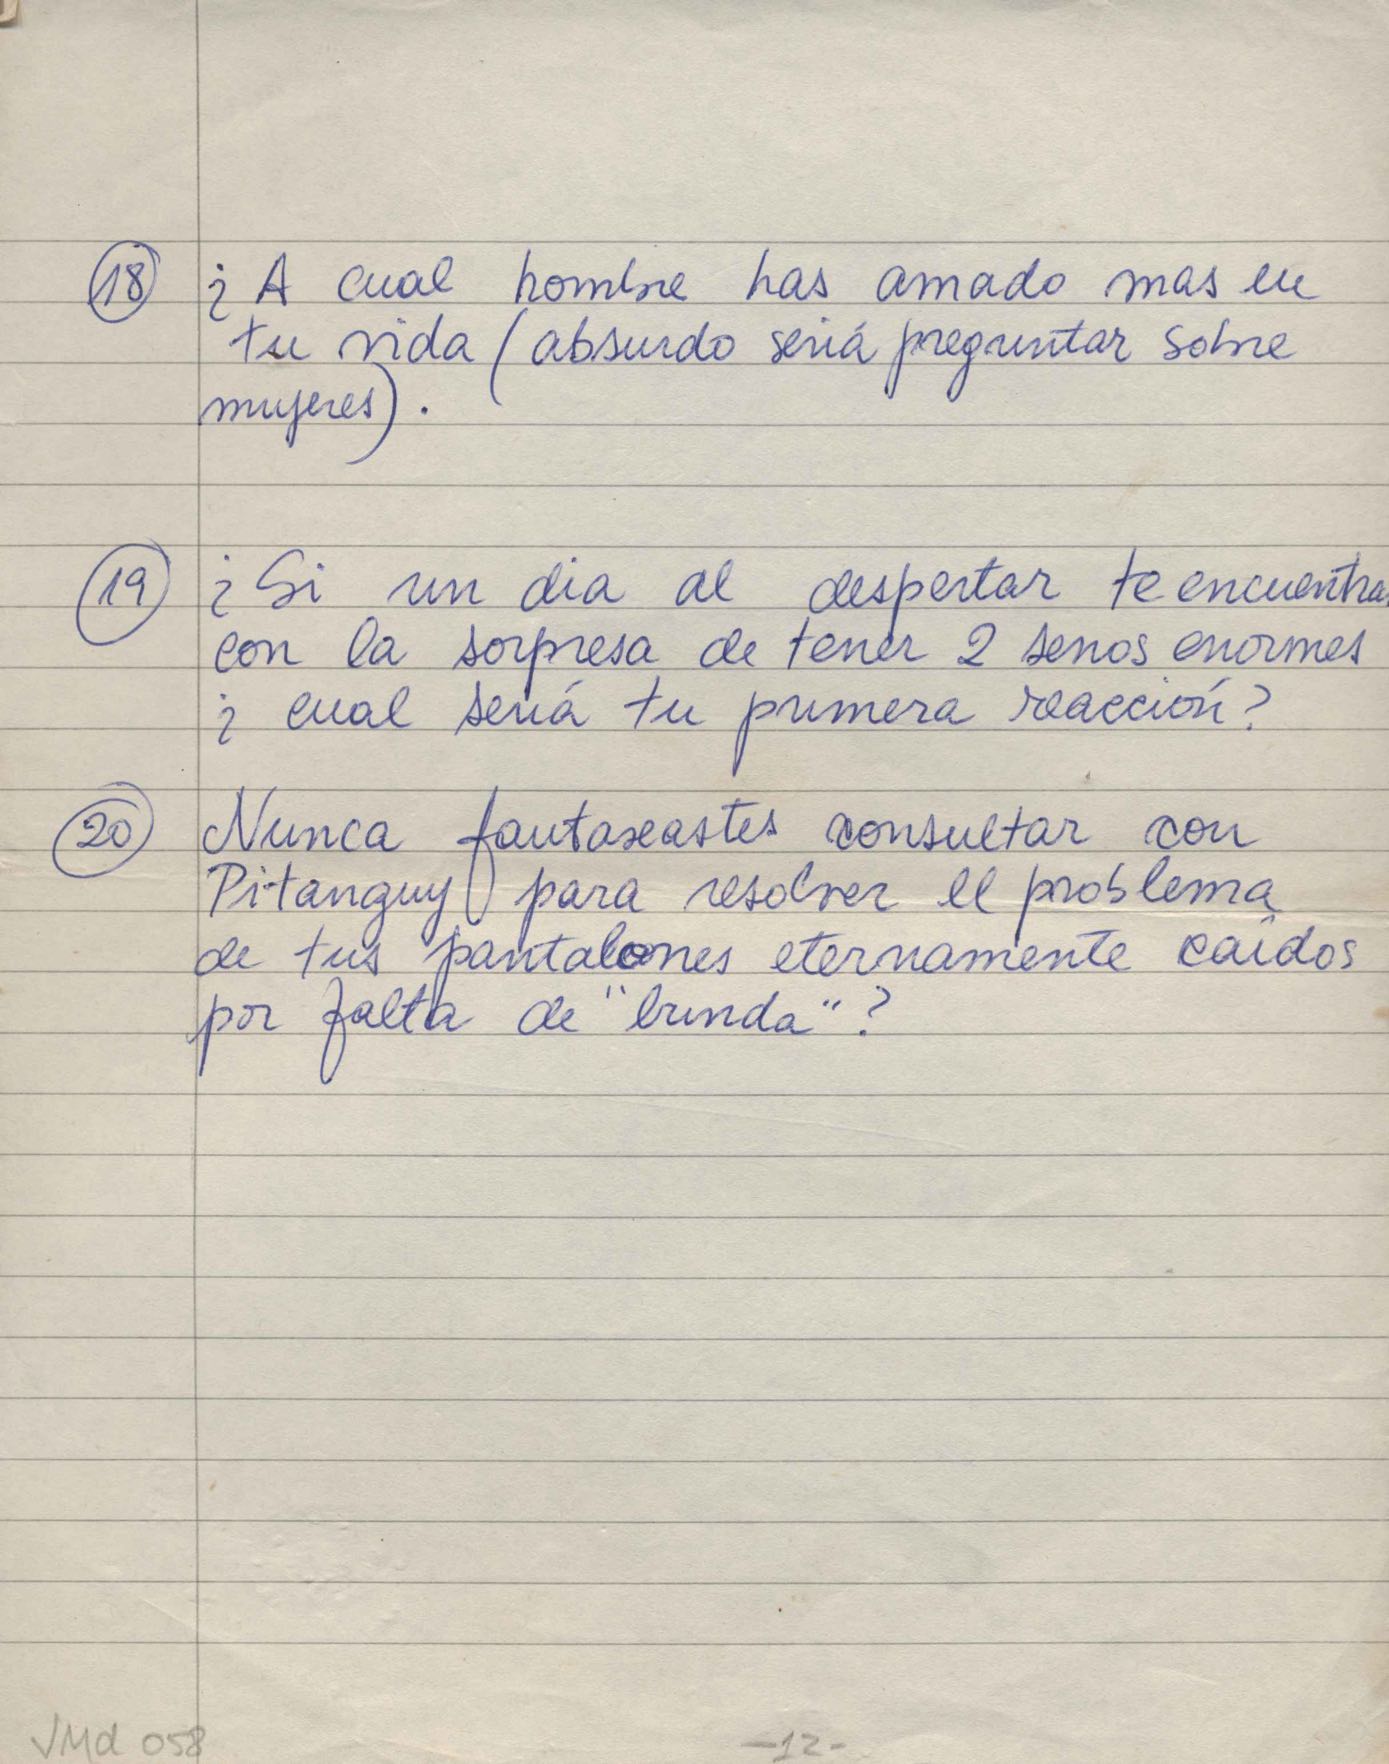 18 ¿A cual hombre has amado mas en
tu vida (absurdo seriá preguntar sobre
mujeres).
19 ¿Si un dia al despertar te encuentras
con la sorpresa de tener 2 senos enormes
¿cual seriá tu primera reacción?
20 Nunca fantaseastes consultar con
Pitanguy para resolver el problema
de tus pantalones eternamente caidos
por falta de "bunda"?
VMd 058
-12-